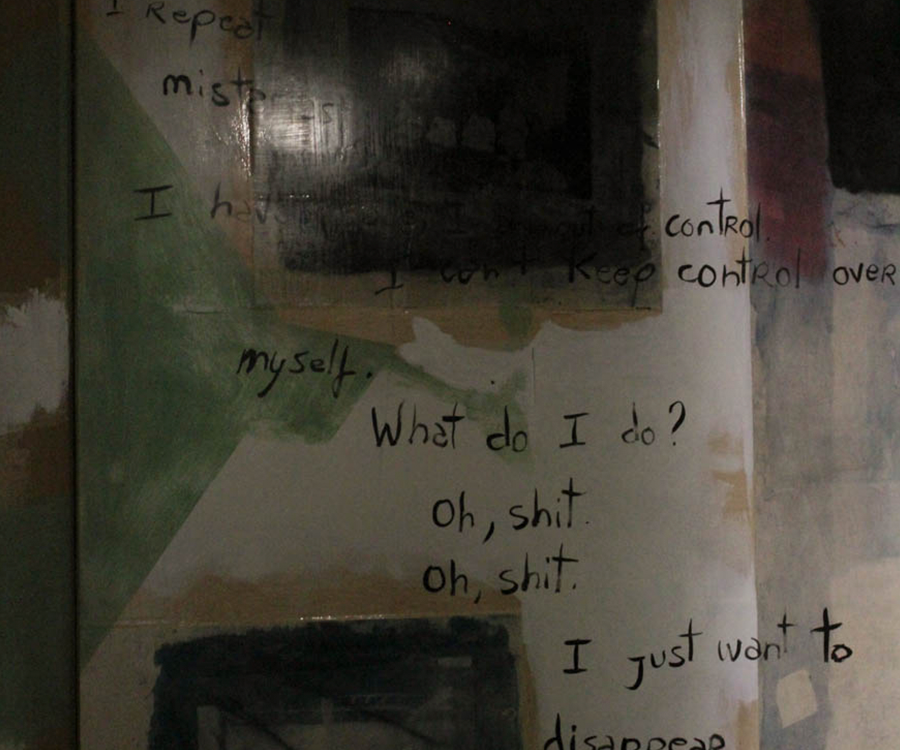 I Repeat
mist
I have
I out of control.
I can't keep control over
myself.
What do I do?
Oh, shit.
Oh, shit.
I just want to
disappear